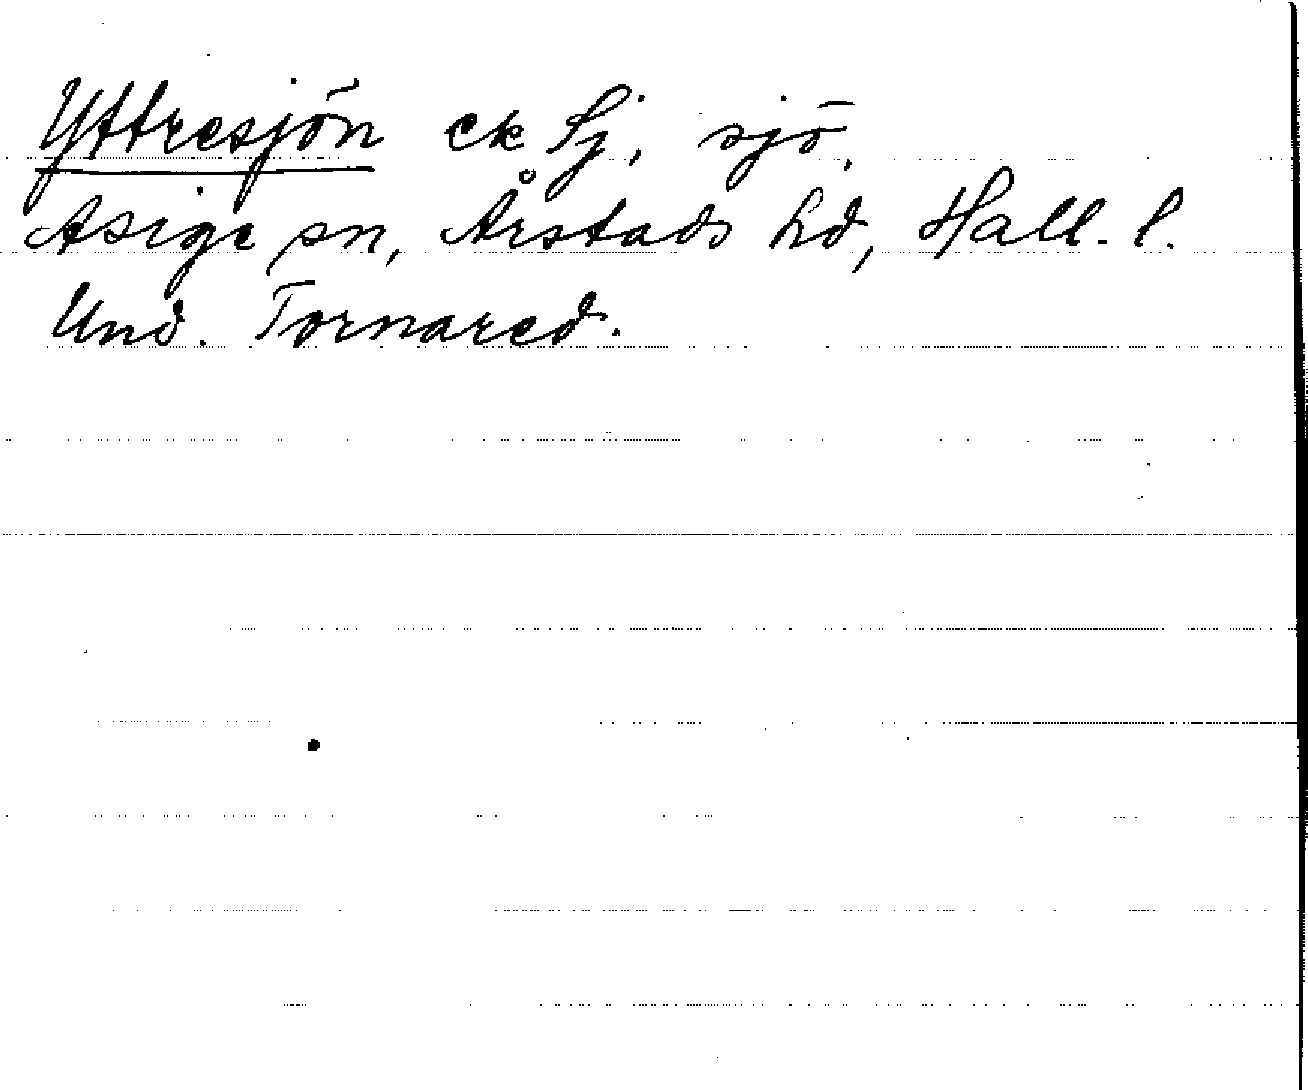 Yttresjön ek Sj, sjö,
Asige sn, Årstads hd, Hall. l.
Und. Tornared.